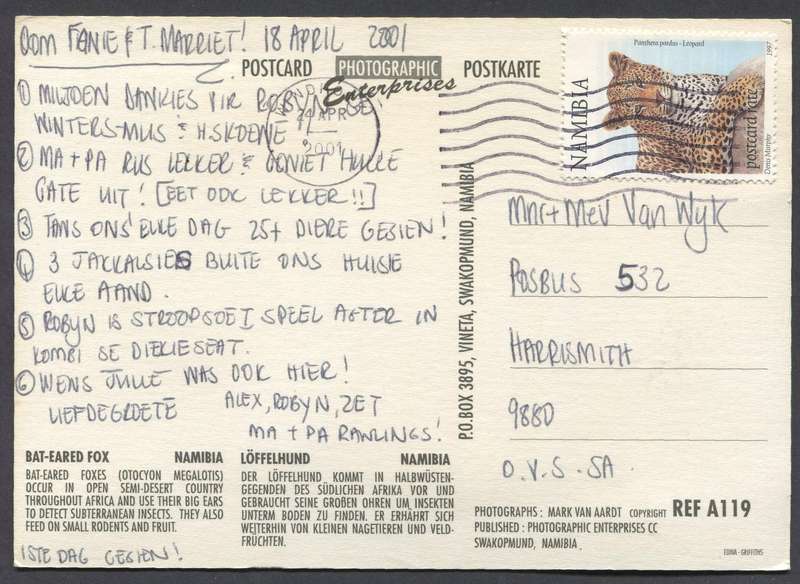 OOM FANIE & T. MARRIET! 18 APRIL 2001
POSTCARD PHOTOGRAPHIC Enterprises POSTKARTE
① MILJOEN DANKIES VIR ROBYN SE
WINTERS-MUS & H.SKOENE
② MA + PA RUS LEKKER & GENIET HULLE
GATE UIT! [EET OOK LEKKER!!]
③ TANS ONS ELKE DAG 25+ DIERE GESIEN!
④ 3 JACKALSIES BUITE ONS HUISIE
ELKE AAND.
⑤ ROBYN IS STROOPSOET SPEEL AGTER IN
KOMBI SE DIEKIESEAT.
⑥ WENS JULLE WAS OOK HIER!
LIEFDEGROETE ALEX, ROBYN, ZET
MA + PA RAWLINGS!
BAT-EARED FOX NAMIBIA
BAT-EARED FOXES (OTOCYON MEGALOTIS)
OCCUR IN OPEN SEMI-DESERT COUNTRY
THROUGHOUT AFRICA AND USE THEIR BIG EARS
TO DETECT SUBTERRANEAN INSECTS. THEY ALSO
FEED ON SMALL RODENTS AND FRUIT.
1STE DAG GESIEN!
LÖFFELHUND NAMIBIA
DER LÖFFELHUND KOMMT IN HALBWÜSTEN-
GEGENDEN DES SÜDLICHEN AFRIKA VOR UND
GEBRAUCHT SEINE GROßEN OHREN UM INSEKTEN
UNTERM BODEN ZU FINDEN. ER ERHÄHRT SICH
WEITERHIN VON KLEINEN NAGETIEREN UND VELD-
FRÜCHTEN.
P.O.BOX 3895, VINETA, SWAKOPMUND, NAMIBIA
24 APR
2001
Panthera pardus - Leopard
1997
NAMIBIA
postcard rate
Denis Murphy
Mnr + Mev Van Wyk
POSBUS 532
HARRISMITH
9880
O.V.S - SA.
PHOTOGRAPHS : MARK VAN AARDT COPYRIGHT REF A119
PUBLISHED : PHOTOGRAPHIC ENTERPRISES CC
SWAKOPMUND, NAMIBIA
EDNA - GRIFFITHS